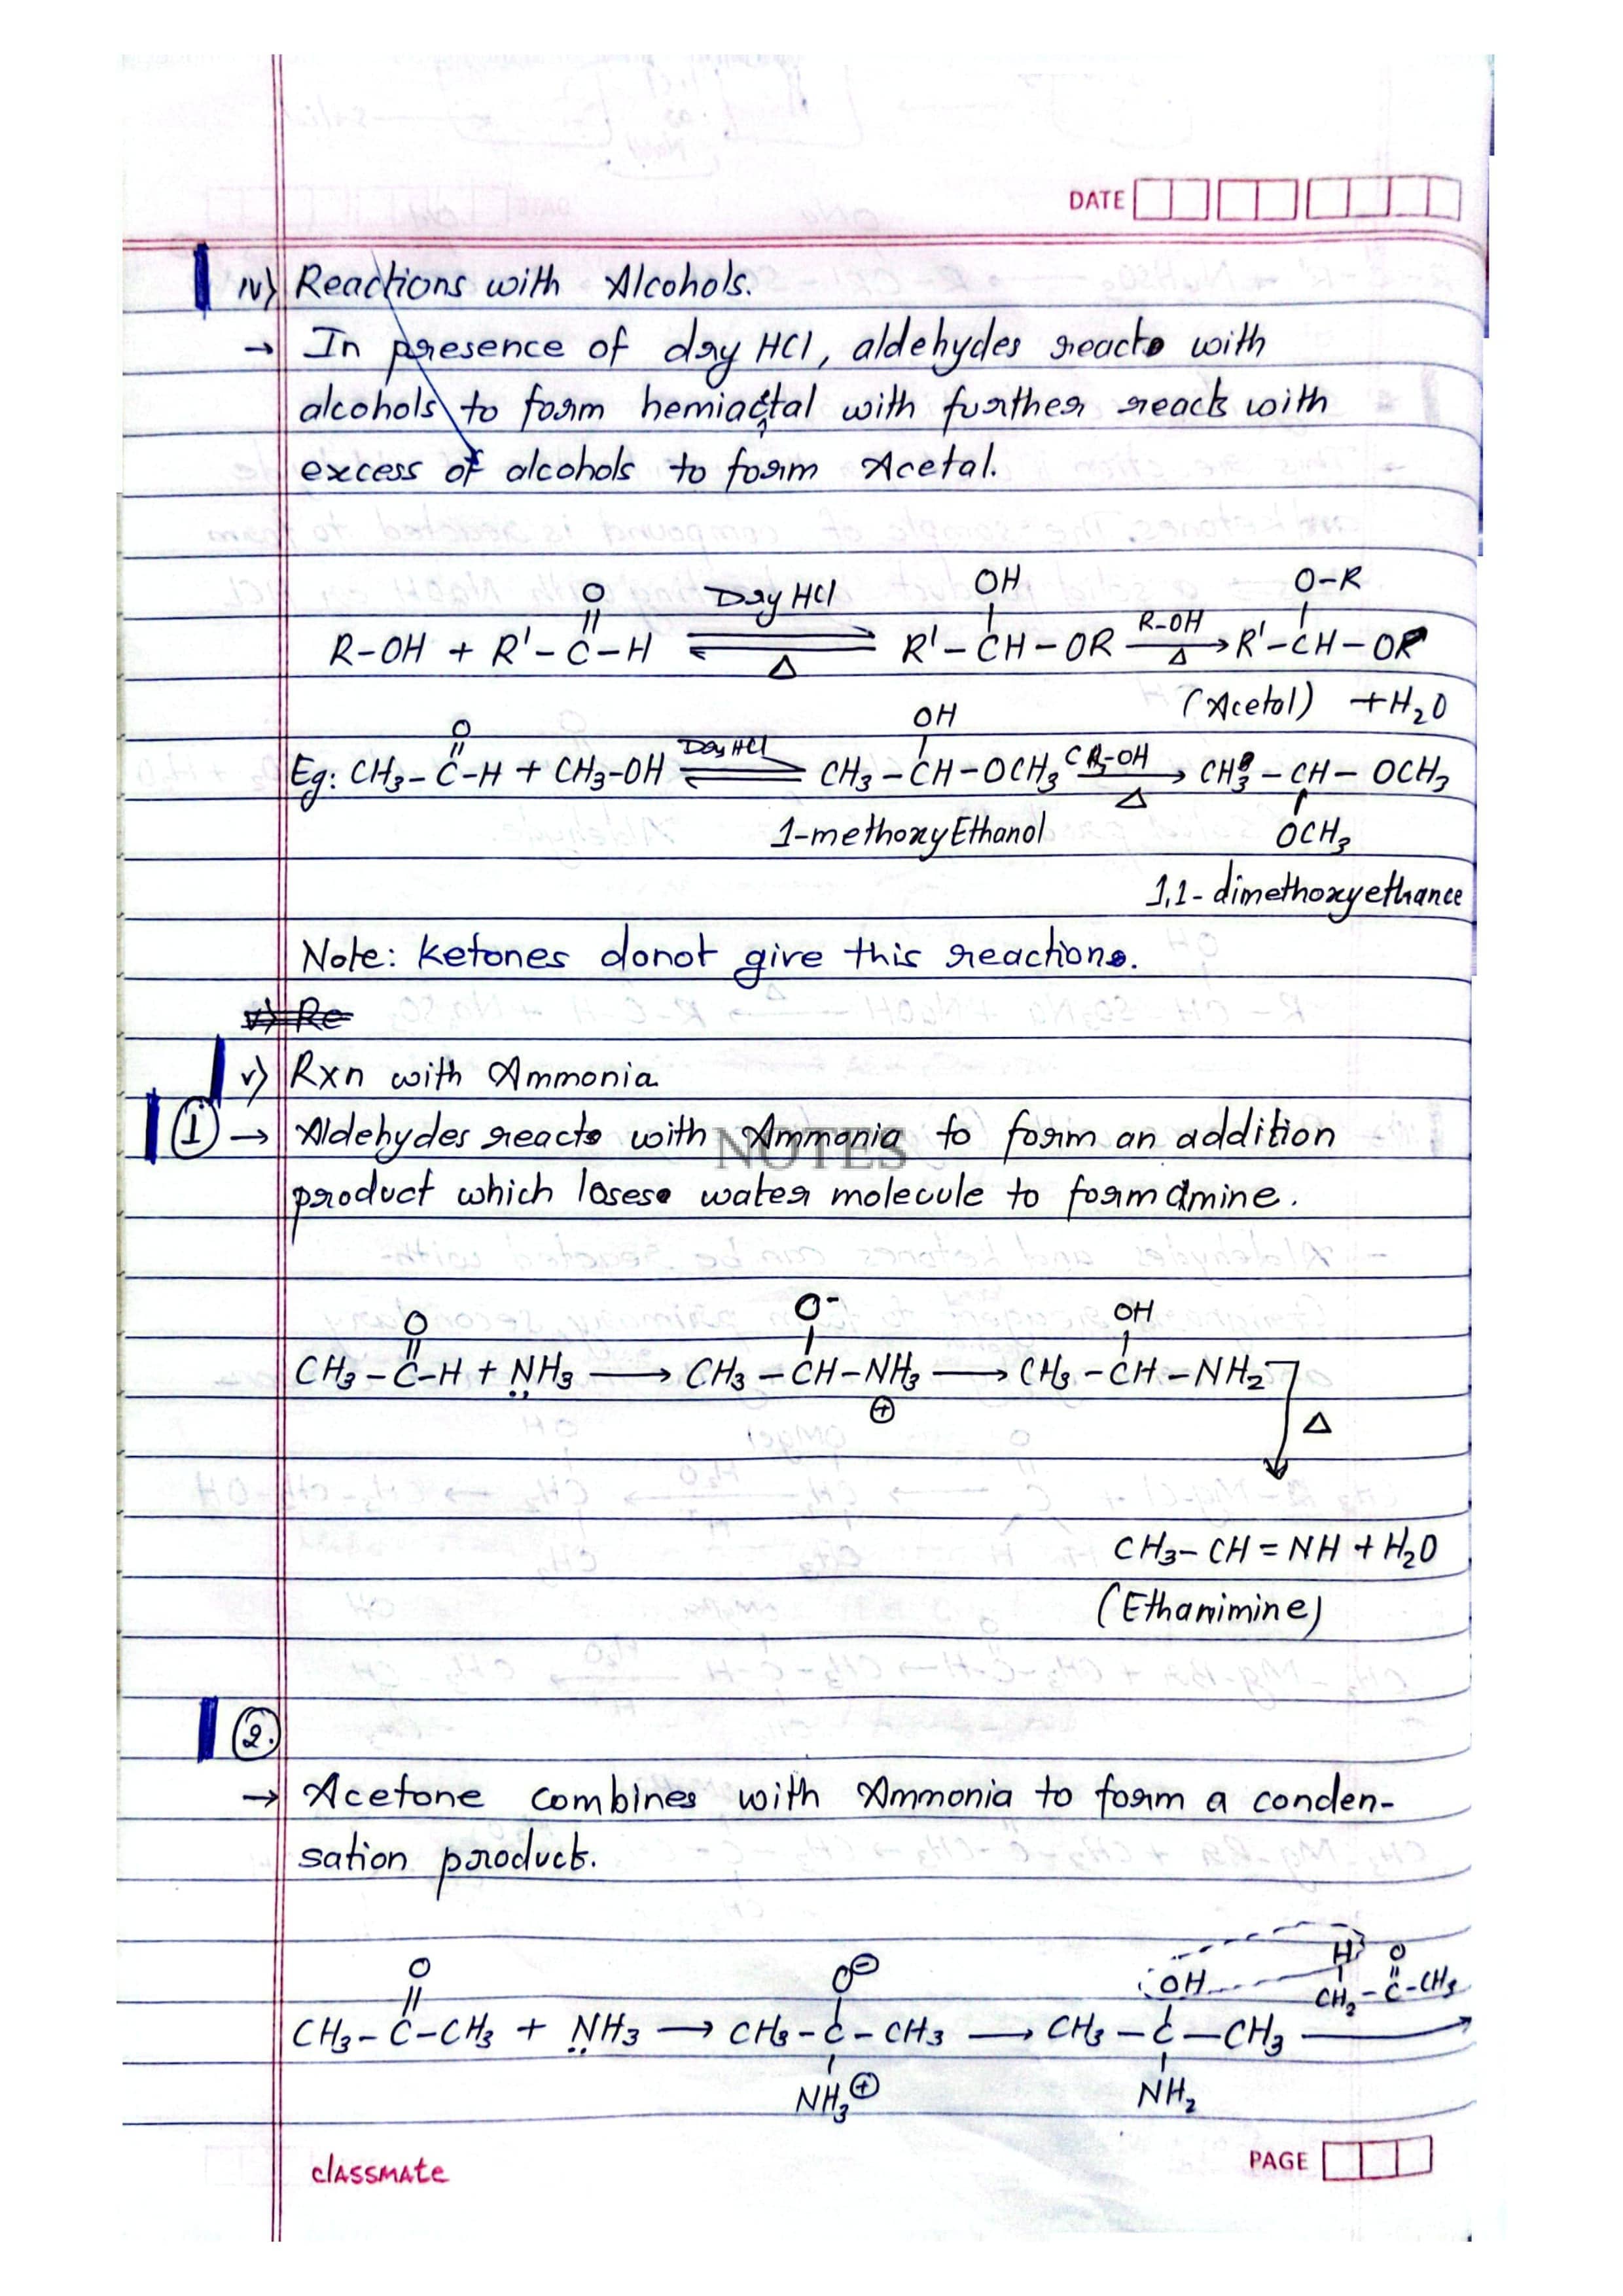 DATE
iv) Reactions with Alcohols.
→ In presence of dry HCl, aldehydes reacts with
alcohols to form hemiacetal with further reacts with
excess of alcohols to form Acetal.
O OH O-R
R-OH + R'-C-H ⇌ Dry HCl Δ R'-CH-OR R-OH → Δ R'-CH-OR
(Acetal) + H₂O
O OH
Eg: CH₃-C-H + CH₃-OH ⇌ Dry HCl CH₃-CH-OCH₃ CH₃-OH → Δ CH₃-CH-OCH₃
1-methoxyEthanol OCH₃
1,1-dimethoxyethance
Note: ketones donot give this reactions.
v) Re
v) Rxn with Ammonia
① → Aldehydes reacts with Ammonia to form an addition
NOTES
product which loses water molecule to form amine.
O O⁻ OH
CH₃-C-H + NH₃ → CH₃-CH-NH₃ → CH₃-CH-NH₂
⊕ Δ
CH₃-CH=NH + H₂O
(Ethanimine)
②.
→ Acetone combines with Ammonia to form a conden-
sation product.
O O⊖ OH H O
CH₂-C-CH₃
CH₃-C-CH₃ + NH₃ → CH₃-C-CH₃ → CH₃-C-CH₃ →
NH₃⊕ NH₂
classmate
PAGE